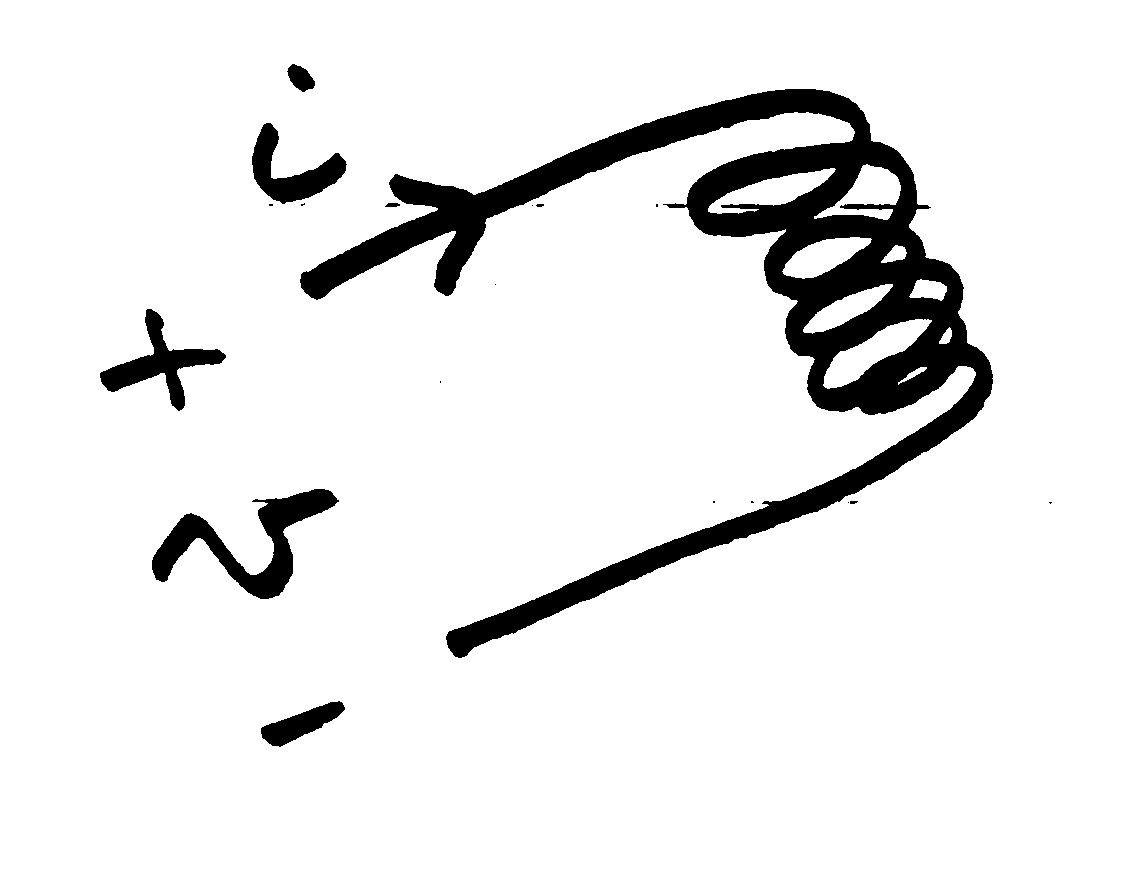 i
+
v
-